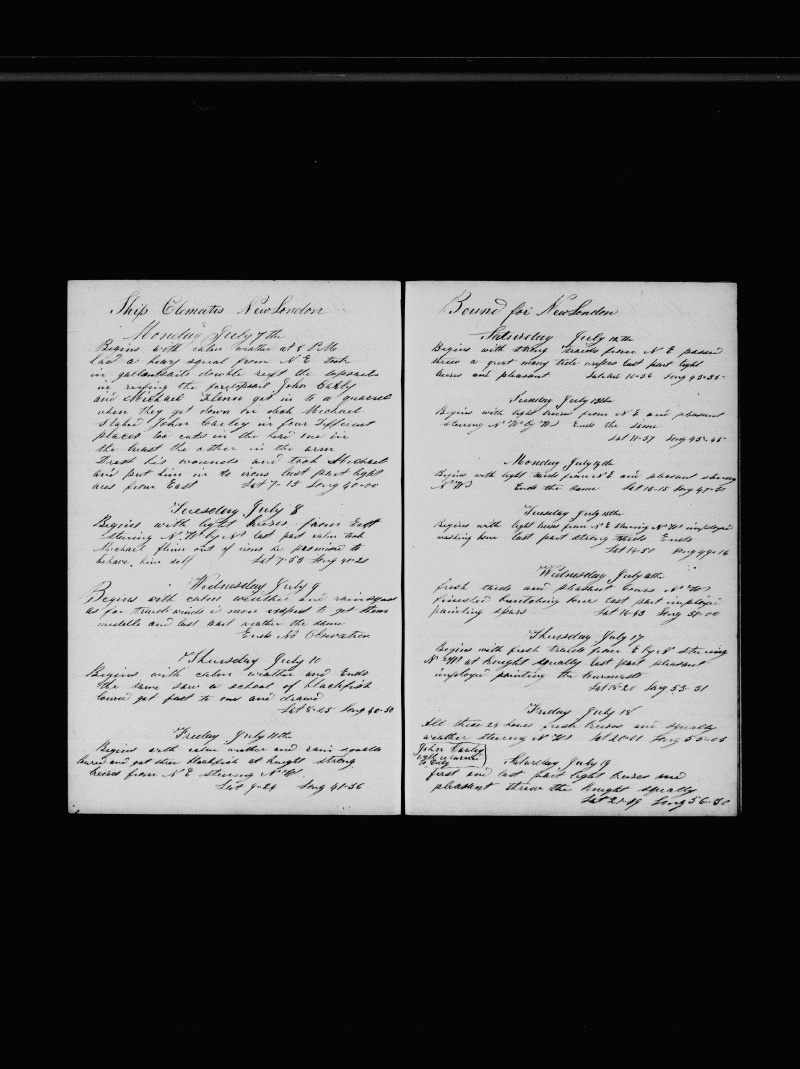 Ship Clematis New London
Monday July 7th
Begins with calm weather at 8 P.M.
had a heavy squal from N E took
in gallantsails double reeft the topsails
in reefing the foretopsail John Carley
and Michael Flenn got in to a quarrel
when they got down on deck Michael
Stabed John Carley in four different
places too cuts in the head one in
the breast the other in the arm
Drest his wounds and took Michael
and put him in to irons last part light
ares from East Lat 7-15 Long 40-00
Tuesday July 8
Begins with light breses from East
steering N.W by N last part calm took
Michael flenn out of irons he promised to
behave him self Lat 7-53 Long 40-20
Wednesday July 9
Begins with calm weather and rain squals
as for trade winds i never expect to get them
middle and last part weather the same
Ends No Obsevation
Thursday July 10
Begins with calm weather and Ends
the same saw a school of blackfish
lowred got fast to one and drawd
Lat 8-25 Long 40-50
Friday July 11th
Begins with calm weather and rain squalls
lowred and got three blackfish at knight strong
breses from N E steering N.W.
Lat 9-24 Long 41-56
Bound for New London
Saturday July 12th
Begins with strong traids from N E passed
threw a great many tide rips last part light
breses and pleasant Latitude 10-36 Long 43-55
Sunday July 13th
Begins with light breses from N E and pleasant
steering N W by W Ends the same
Lat 11-37 Long 45-45
Monday July 14th
Begins with light traids from N E and pleasant steering
N W Ends the same Lat 13-15 Long 47-50
Tuesday July 15th
Begins with light breses from N E steering N W imployed
washing bone last part strong traids Ends
Lat 14-51 Long 49-16
Wednesday July 16th
fresh traids and pleasant Course N W
finished bone last part imployed
painting spars Lat 16-43 Long 51-00
Thursday July 17
Begins with fresh traids from E by N steering
N W at knight squally last part pleasant
imployed painting the lowmasts
Lat 18-20 Long 53-31
Friday July 18
All these 24 hours fresh breses and squally
weather steering N W Lat 20-01 Long 55-05
John Carley
returned
to duty
Saturday July 19
first and last part light breses and
pleasant threw the knight squally
Lat 21-49 Long 56-50